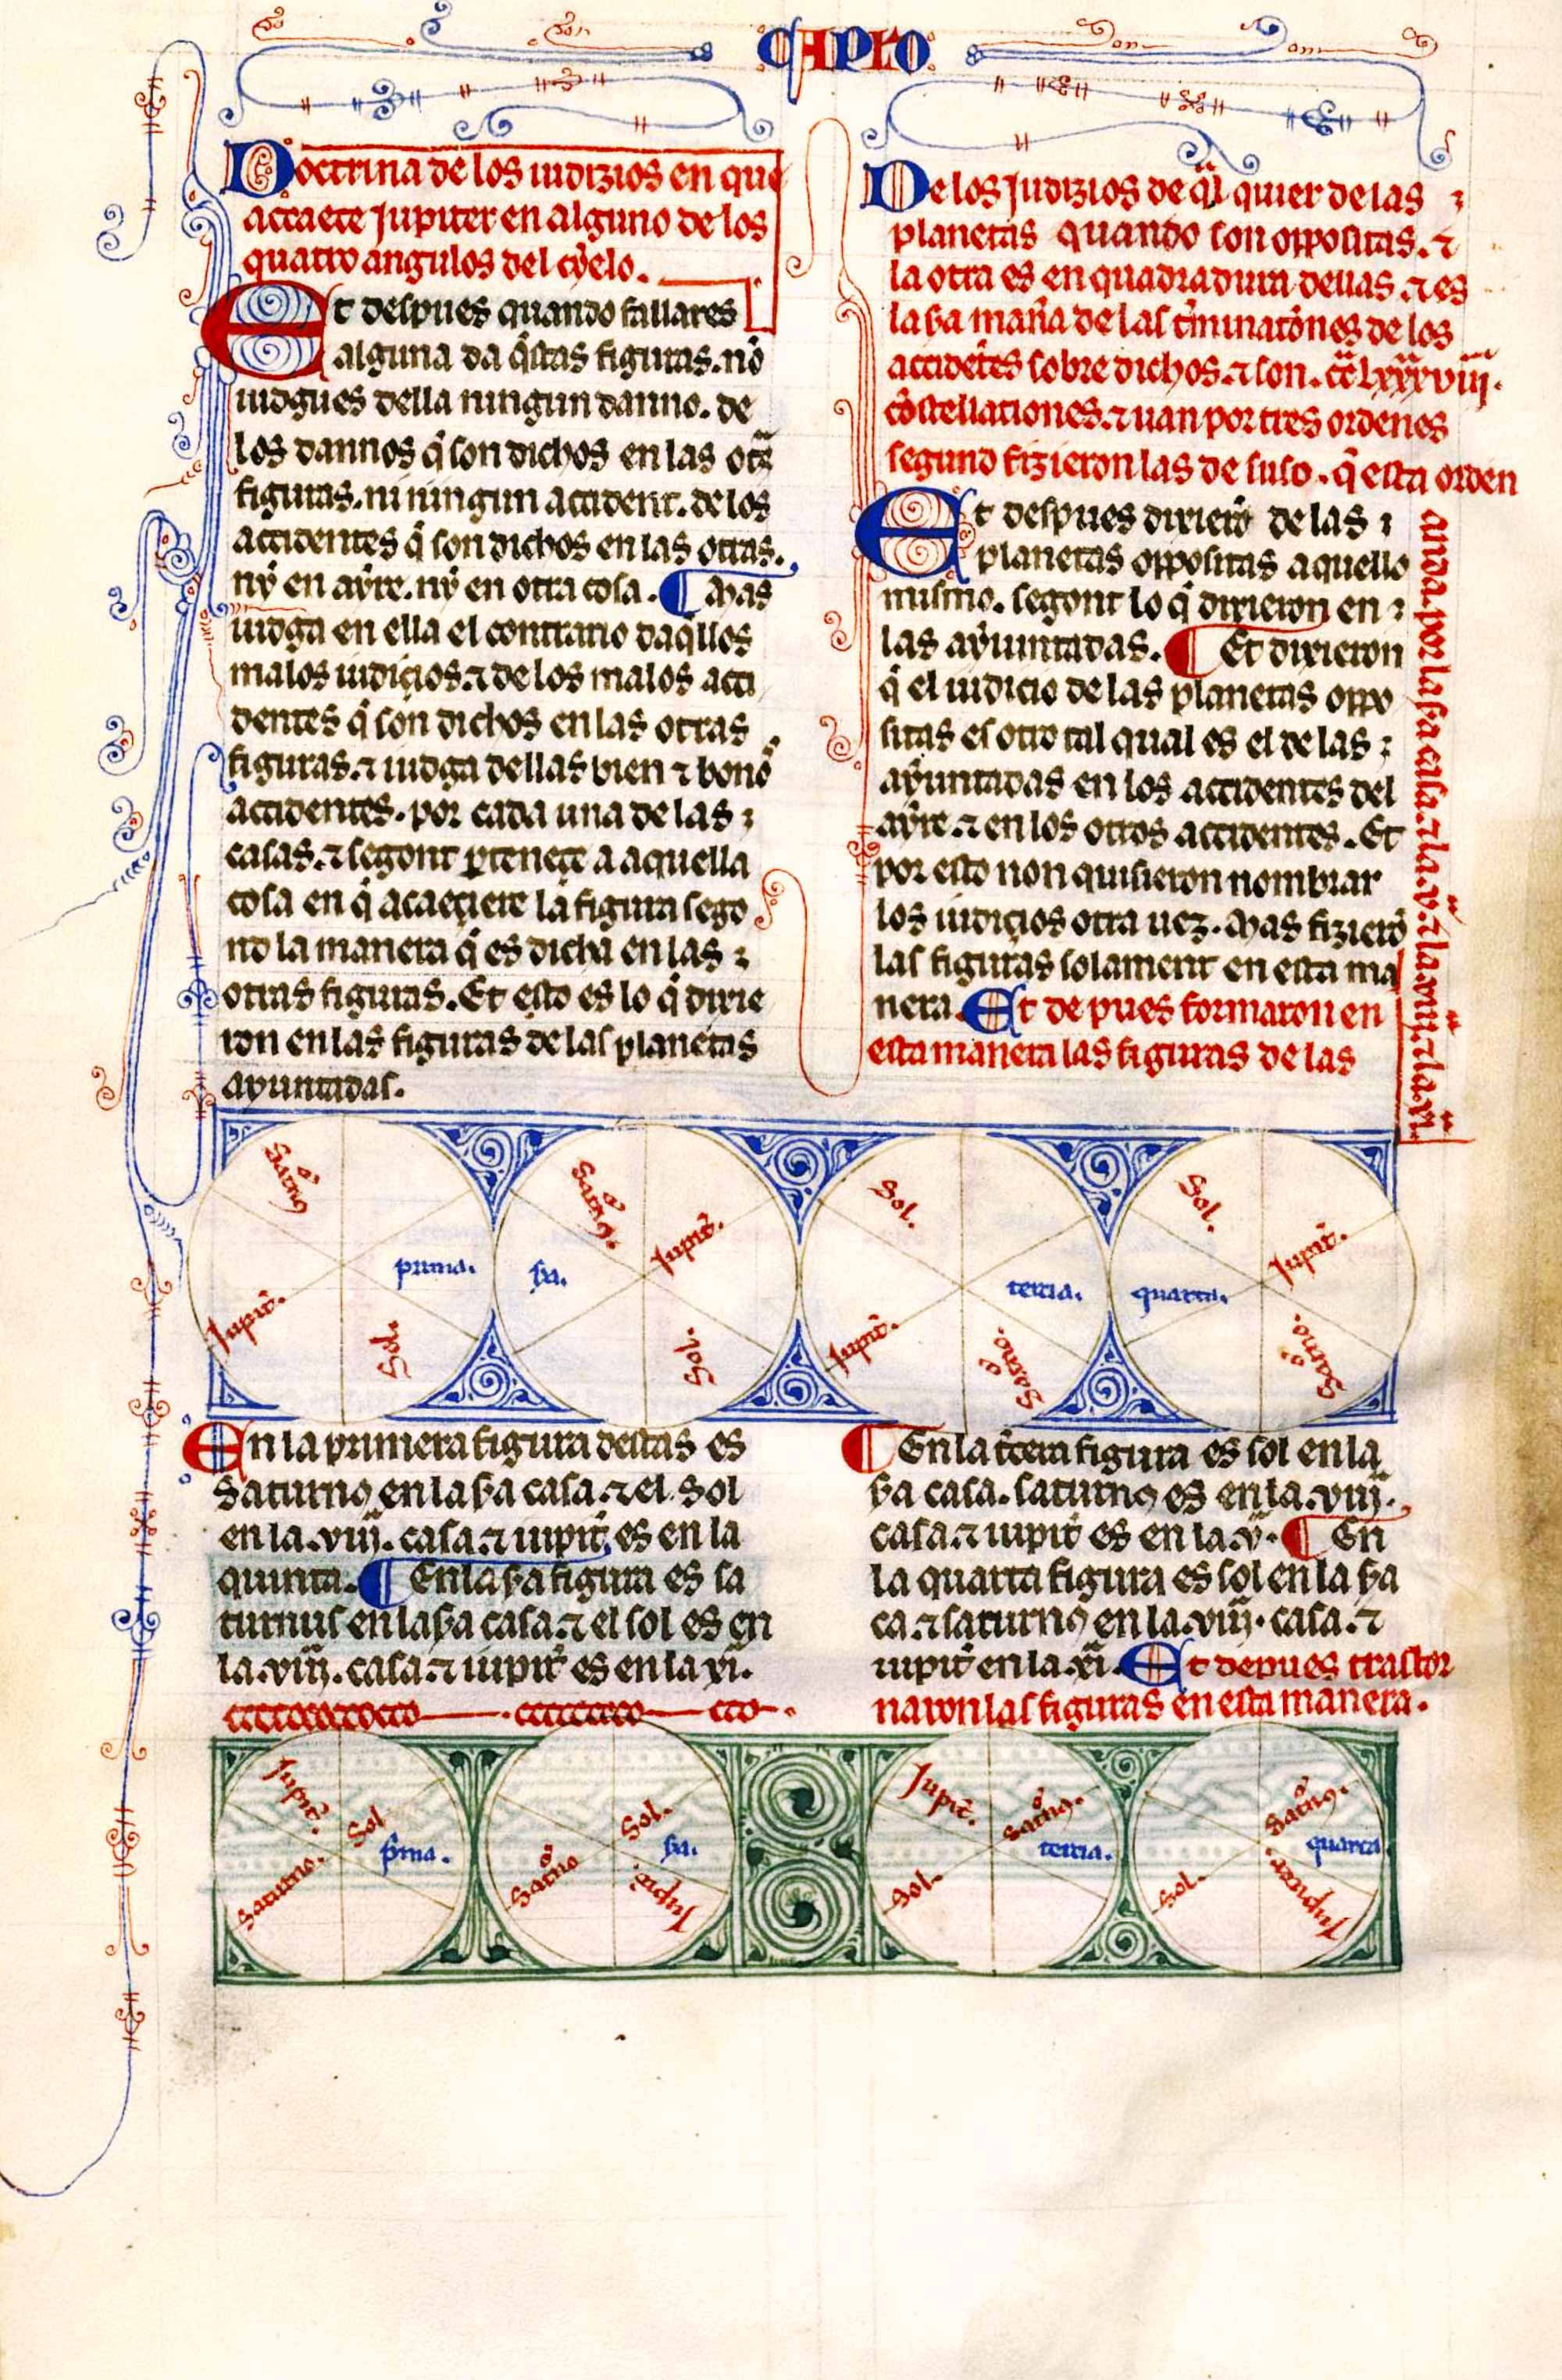 CAPLO
Doctrina de los iudizios en que
acaece Jupiter en alguno de los
quatro angulos del cyelo.
Et despues quando fallares
alguna da q̃stas figuras. nõ
iudgues della ningun danno. de
los dannos q̃ son dichos en las otr̃s
figuras. ni ningun accident. de los
accidentes q̃ son dichos en las otras.
nẏ en aẏre. nẏ en otra cosa. ¶ Mas
iudga en ella el contrario daq̃llos
malos iudicios. ⁊ de los malos acci
dentes q̃ son dichos en las otras
figuras. ⁊ iudga dellas bien ⁊ bonõs
accidentes. por cada una de las
casas. ⁊ segont ꝑtenece a aquella
cosa en q̃ acaeciere la figura sego
nd la manera q̃ es dicha en las
otras figuras. Et esto es lo q̃ dixie
ron en las figuras de las planetas
ayuntadas.
De los Judizios de q̃l quier de las
planetas quando son oppositas. ⁊
la otra es en quadradura dellas. ⁊ es
la ẞa mañra de las t̃minatiõnes de los
accidẽtes sobre dichos. ⁊ son. cclxxxviii.
cõstellationes. ⁊ uan por tres ordenes
segund fizieron las de suso. q̃ esta orden
anda por la ẞa casa. ⁊ la. v. ⁊ la. viii. ⁊ la. xi.
Et despues dixierõ de las
planetas oppositas aquello
mismo. segont lo q̃ dixieron en
las aẏuntadas. ¶ Et dixieron
q̃ el iudicio de las planetas oppo
sitas es otro tal qual es el de las
aẏuntadas en los accidentes del
aẏre. ⁊ en los otros accidentes. Et
por esto non quisieron nombrar
los iudicios otra uez. Mas fizierõ
las figuras solament en esta ma
nera. Et de pues formaron en
esta manera las figuras de las
Sat̃no
Jupit̃.
Sol.
prima.
Sat̃no.
Jupit̃.
ẞa.
Sol.
Sol.
Jupit̃.
tercia.
Sat̃no.
Sol.
Jupit̃.
quarta.
Sat̃no.
En la primera figura destas es
Saturno en la ẞa casa. ⁊ el Sol
en la. viii. casa. ⁊ iupit̃ es en la
quinta. ¶ En la ẞa figura es sa
turnus en la ẞa casa. ⁊ el sol es en
la. viii. casa. ⁊ iupit̃ es en la xi.
¶ En la t̃cera figura es sol en la
ẞa casa. saturno es en la. viii.
casa. ⁊ iupit̃ es en la. v. ¶ En
la quarta figura es sol en la ẞa
ca. ⁊ saturno en la. viii. casa. ⁊
iupit̃ en la. xi. Et depues trastor
naron las figuras en esta manera.
Jupit̃.
Sol
p̃ma.
Saturno.
Sol.
ẞa.
Sat̃no
Jupit̃.
Jupit̃.
Sat̃no.
tercia.
Sol.
Sat̃no.
quarta
Sol.
Jupiter.